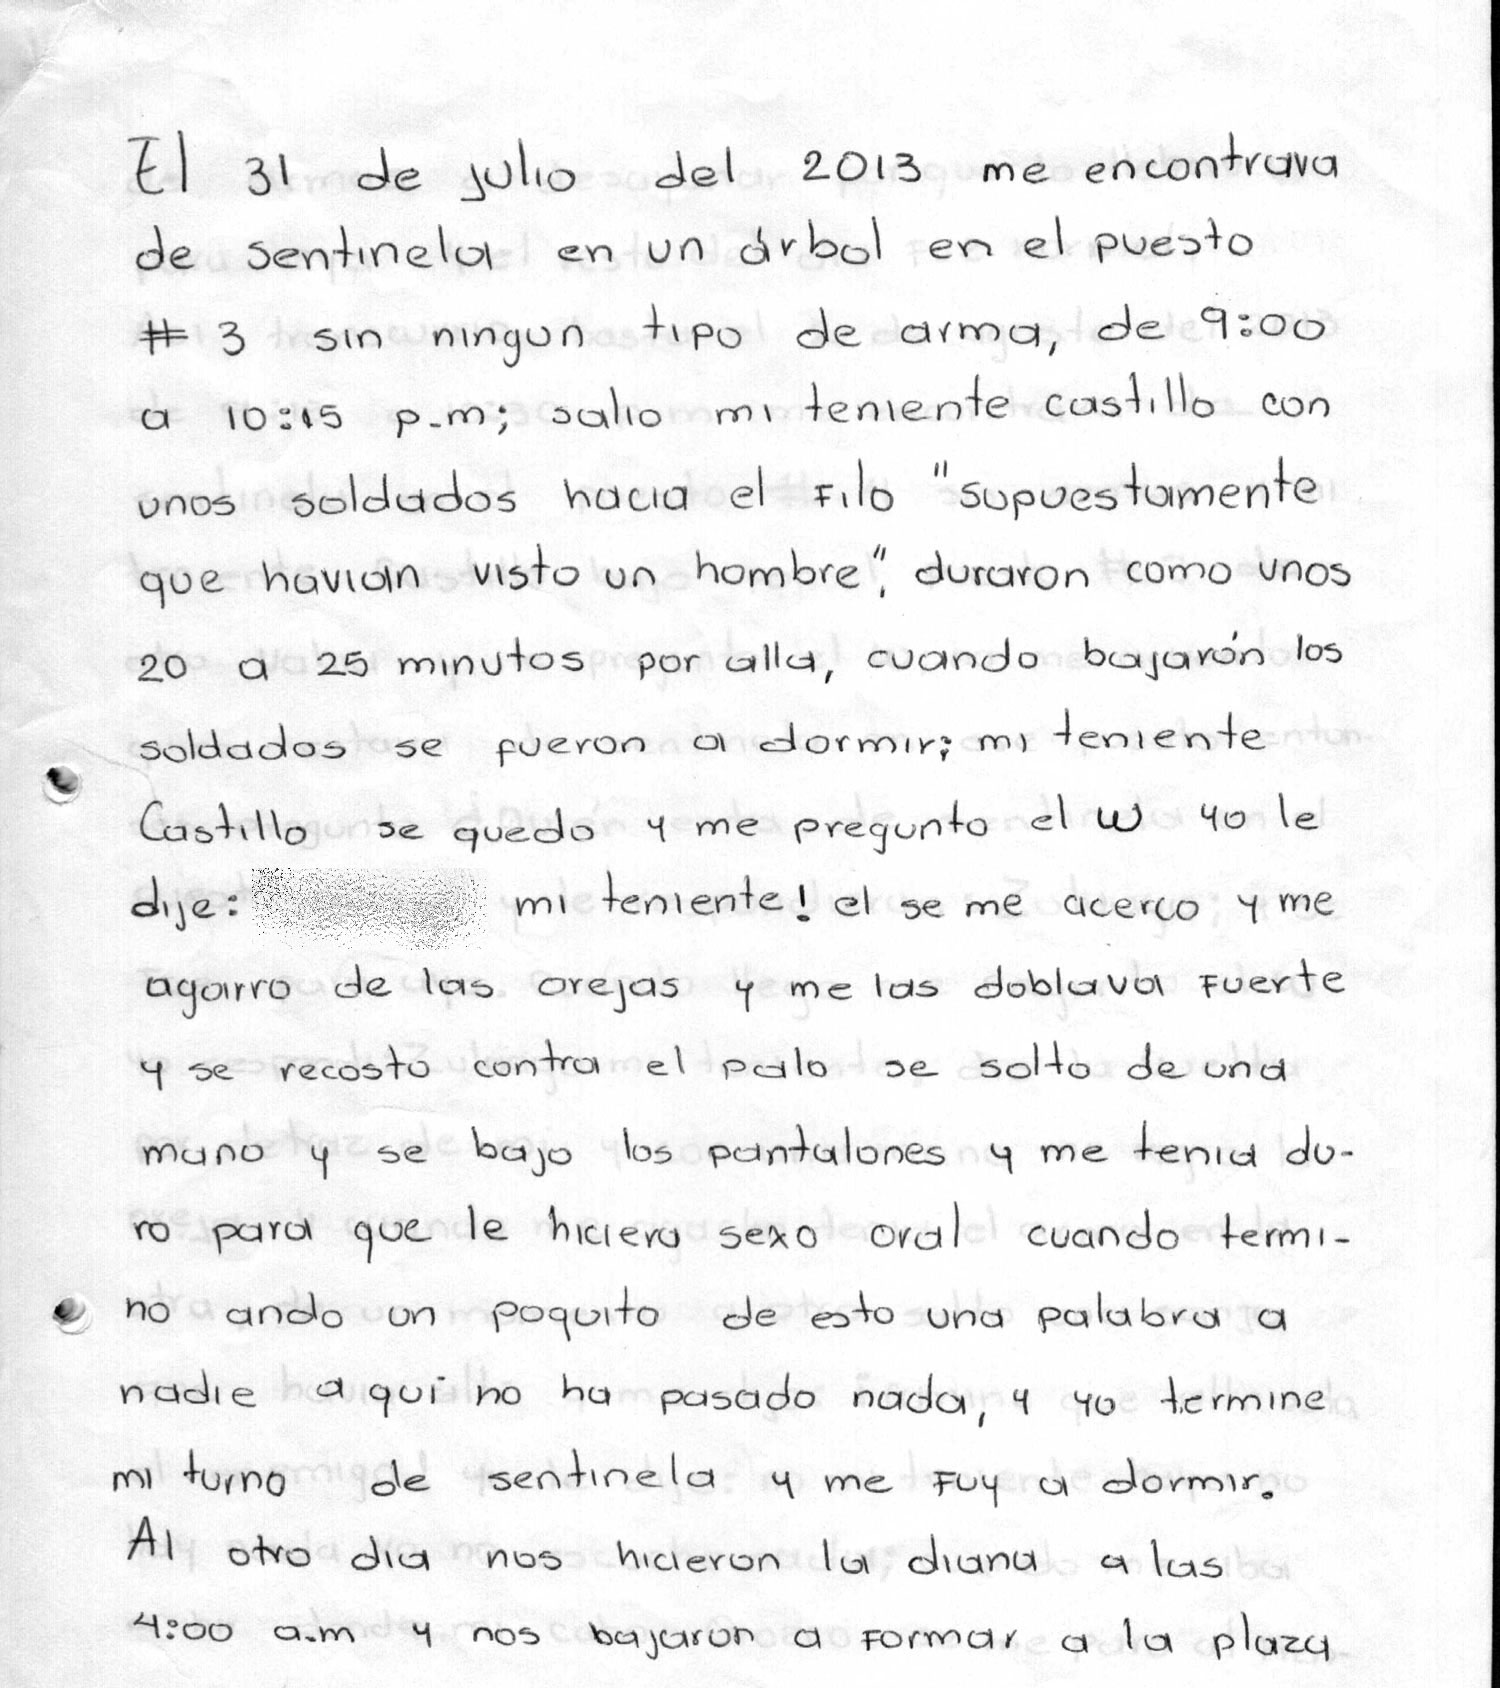 El 31 de julio del 2013 me encontrava
de sentinela en un árbol en el puesto
# 3 sin ningun tipo de arma, de 9:00
a 10:15 p.m; salio mi teniente castillo con
unos soldados hacia el Filo "supuestamente
que havian visto un hombre", duraron como unos
20 a 25 minutos por alla, cuando bajarón los
soldados se fueron a dormir; mi teniente
Castillo se quedo y me pregunto el W yo le
dije: mi teniente! el se me acerco y me
agarro de las orejas y me las doblava Fuerte
y se recosto contra el palo se solto de una
mano y se bajo los pantalones y me tenia du-
ro para que le hiciera sexo oral cuando termi-
no ando un poquito de esto una palabra a
nadie aqui no ha pasado nada, y yo termine
mi turno de sentinela y me Fuy a dormir.
Al otro dia nos hicieron la diana a las
4:00 a.m y nos bajaron a Formar a la plaza